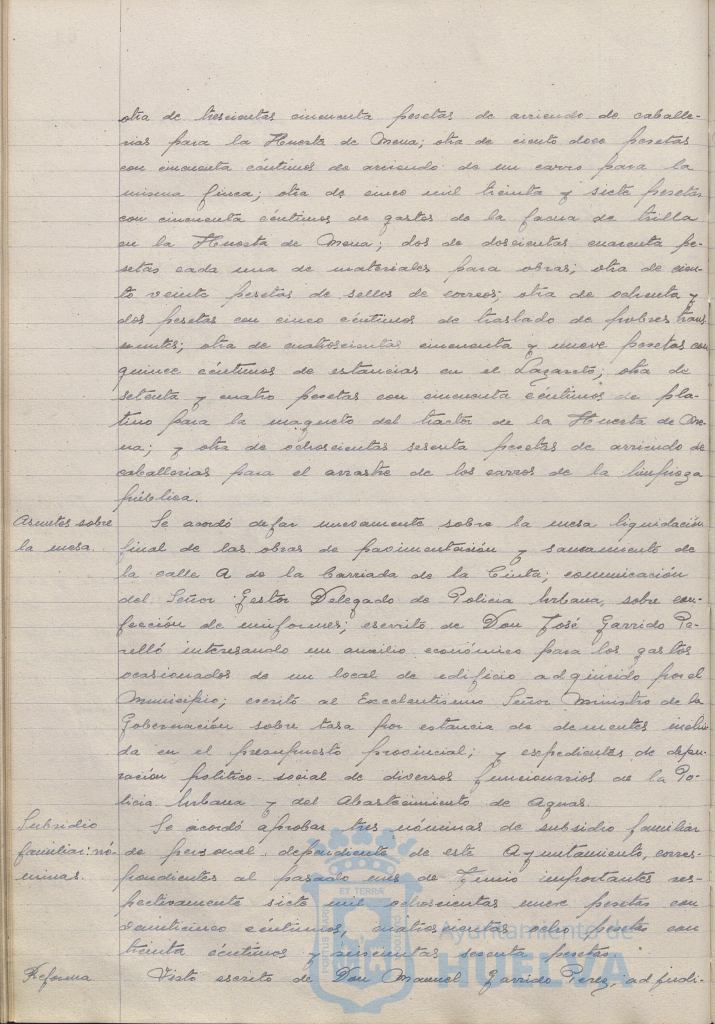 otra de trescientas cincuenta pesetas de arriendo de caballe-
rias para la Huerta de Mena; otra de ciento doce pesetas
con cincuenta céntimos de arriendo de un carro para la
misma finca; otra de cinco mil treinta y siete pesetas
con cincuenta céntimos de gastos de la faena de trilla
en la Huerta de Mena; dos de doscientas cuarenta pe-
setas cada una de materiales para obras; otra de cien-
to veinte pesetas de sellos de correos; otra de ochenta y
dos pesetas con cinco céntimos de traslado de pobres tran-
seuntes; otra de cuatrocientas cincuenta y nueve pesetas con
quince céntimos de estancias en el Lazareto; otra de
setenta y cuatro pesetas con cincuenta céntimos de pla-
tino para la magneto del tractor de la Huerta de Me-
na; y otra de ochocientas sesenta pesetas de arriendo de
caballerias para el arrastre de los carros de la limpieza
pública.
Asuntos sobre
la mesa.
Se acordó dejar nuevamente sobre la mesa liquidación
final de las obras de pavimentación y saneamiento de
la calle A de la Barriada de la Cinta; comunicación
del Señor Gestor Delegado de Policia Urbana, sobre con-
fección de uniformes; escrito de Don José Garrido Pe-
relló interesando un auxilio económico para los gastos
ocasionados de un local de edificio adquirido por el
Municipio; escrito al Excelentisimo Señor Ministro de la
Gobernación sobre tasa por estancia de dementes inclui-
da en el presupuesto provincial; y expedientes de depu-
ración politico-social de diversos funcionarios de la Po-
licia Urbana y del Abastecimiento de Aguas.
Subsidio
familiar: nó-
minas.
Se acordó aprobar tres nóminas de subsidio familiar
de personal dependiente de este Ayuntamiento, corres-
pondientes al pasado mes de Junio importantes res-
pectivamente siete mil ochocientas nueve pesetas con
veinticinco céntimos, cuatrocientas ocho pesetas con
treinta céntimos y seiscientas sesenta pesetas.
Reforma
Visto escrito de Don Manuel Garrido Perez, adjudi-
PORTUS MARIS
ET TERRÆ
CUSTODIA
Ayuntamiento de
HUELVA